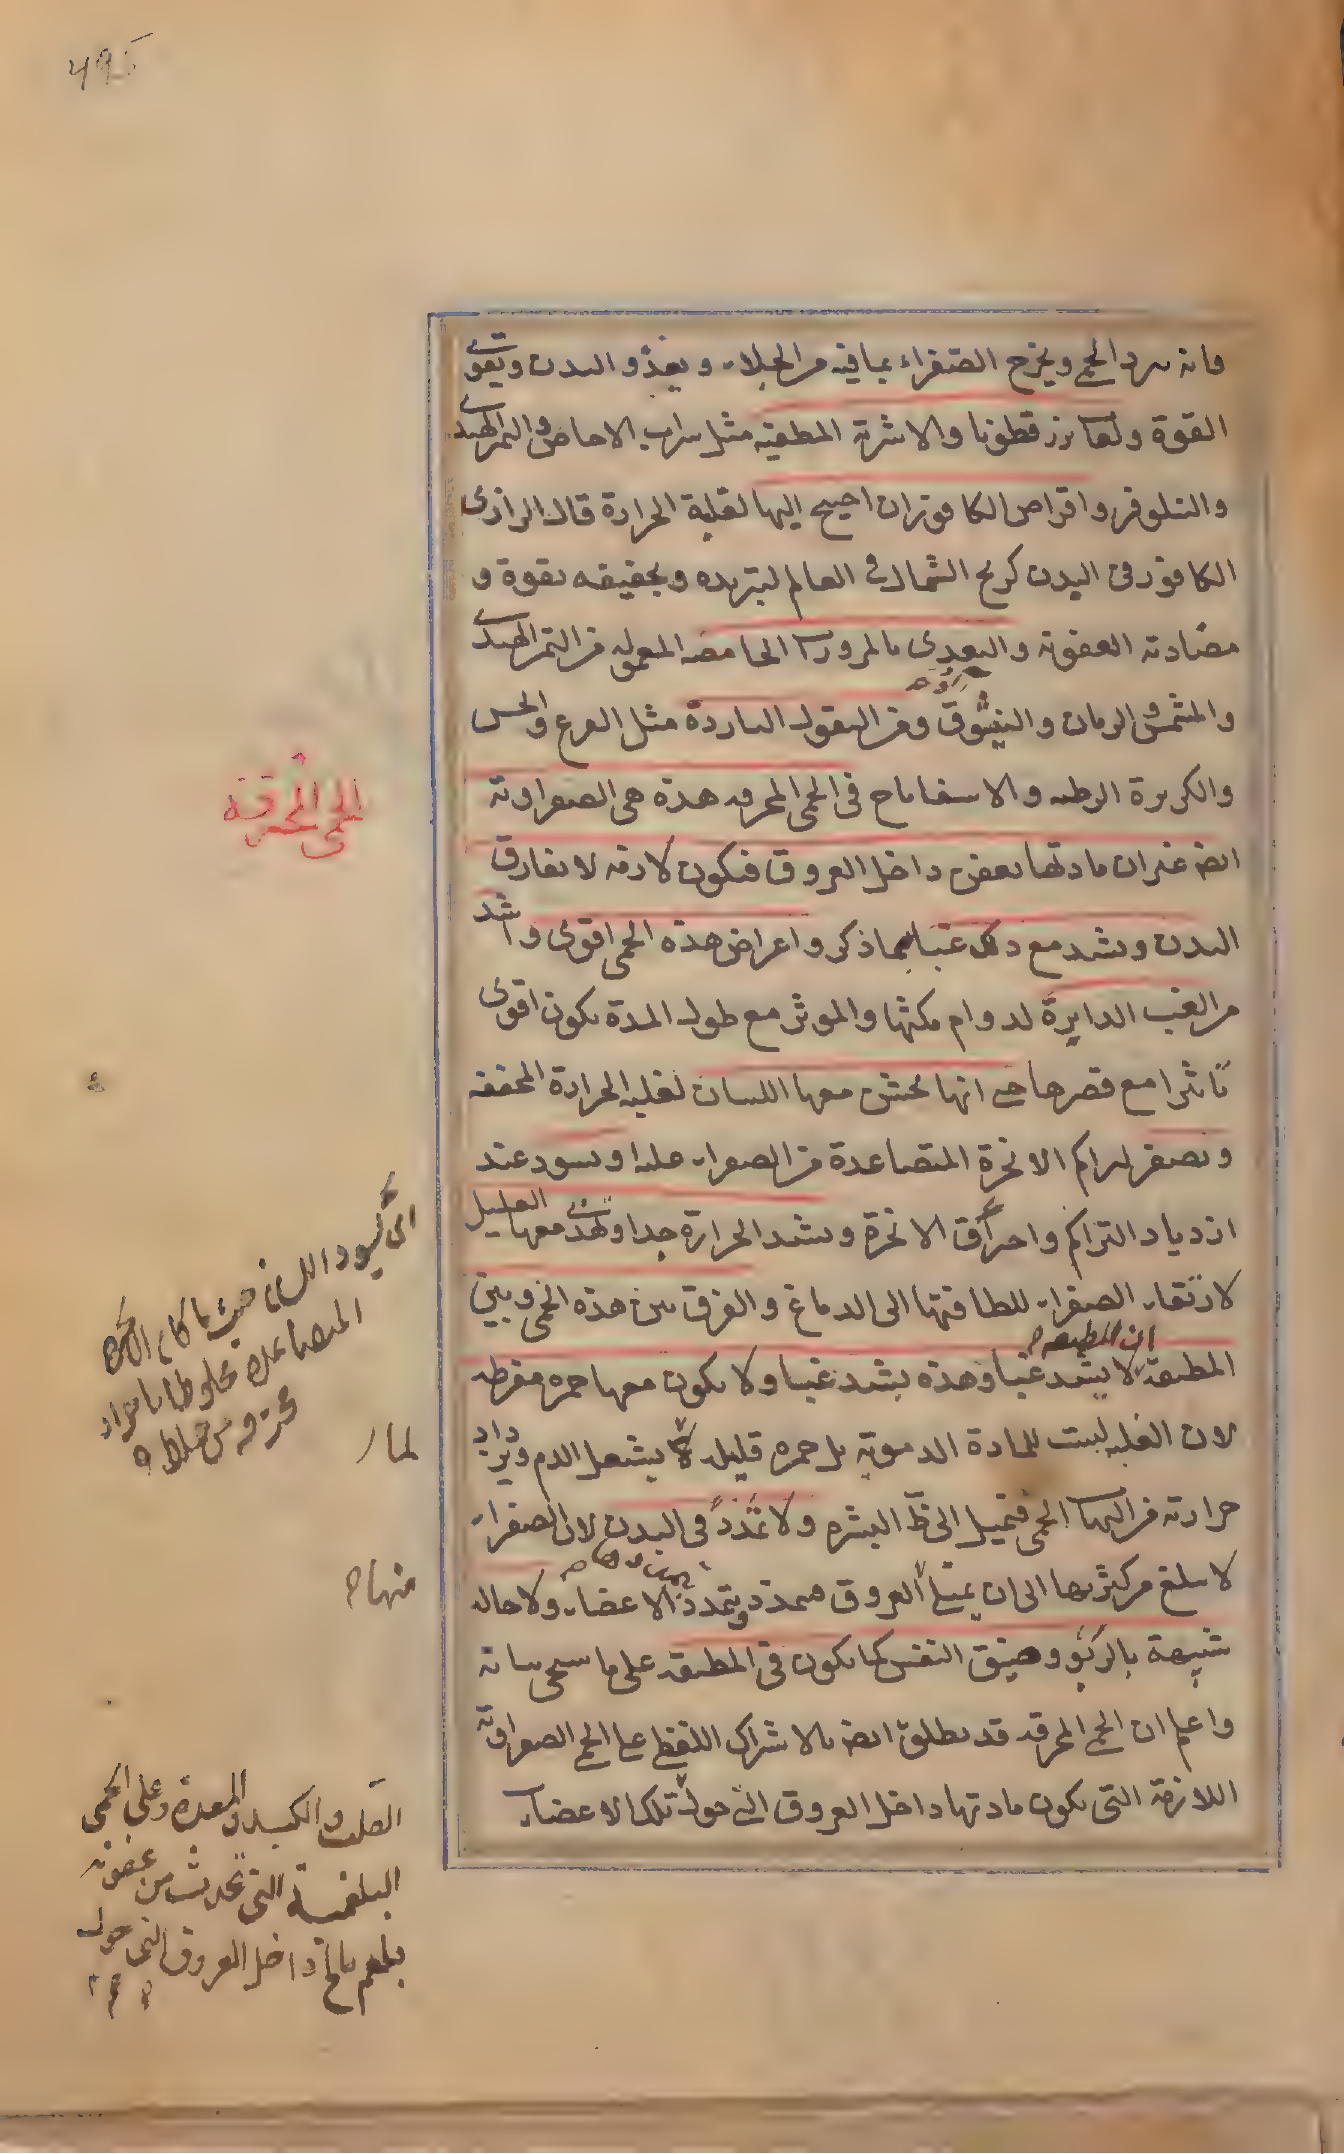 ۴۹۵
فانه يبرد الحمى ويخرج الصفراء بما فيه من الجلاء ويغذو البدن ويقوى
القوة ولعاب بزر قطونا والاشربة المطفيه مثل شراب الاجاص والتمر الهندى
والنيلوفر واقراص الكافور ان احتيج اليها لغلبة الحرارة قال الرازى
الكافور فى البدن كريح الشمال فى العالم لتبريده وتجفيفه بقوة و
مضادته العفونة والتغذى بالمزورات الحامضه المعموله من التمر الهندى
والمشمش والرمان والنيشوق ومن البقول الباردة مثل القرع والخس
والكزبرة الرطبه والاسفاناخ فى الحمى المحرقه هذه هى الصفراوية
ايضا غير ان مادتها تعفن داخل العروق فتكون لازمه لا تفارق
البدن وتشتد مع ذلك غبا لما ذكر واعراض هذه الحمى اقوى واشد
من الغب الدايرة لدوام مكثها والموثر مع طول المدة يكون اقوى
تاثيرا مع قصرها حتى انها يخشن معها اللسان لغلبه الحرارة المجففه
ويصفر لتراكم الابخرة المتصاعدة من الصفراء عليه او يسود عند
ازدياد التراكم واحتراق الابخرة وتشتد الحرارة جدا ويهذى معها العليل
لارتقاء الصفراء للطافتها الى الدماغ والفرق بين هذه الحمى وبين
المطبقة ان المطبقه لا يشتد غبا وهذه يشتد غبا ولا يكون معها حمره مفرطه
لان الغلبه ليست للمادة الدمويه بل حمره قليله لما يشتعل الدم ويزداد
حرارته من التهاب الحمى فتميل الى ظاهر البشره ولا تمدد فى البدن لان الصفراء
لا يبلغ من كثرتها الى ان يمتلئ العروق فيتمدد ويتمدد الاعضاء ولا حاله
شبيهة بالربو وضيق النفس كما يكون فى المطبقه على ما سيجئ بيانه
واعلم ان الحمى المحرقه قد يطلق ايضا بالاشتراك اللفظى على الحمى الصفراوية
اللازمة التى يكون مادتها داخل العروق التى حول تلك الاعضاء
الحمى المحرقة
اى يسود اللسان حيث ما كان الابخره
المتصاعدة مخلوطا بالسواد
محترقه من خلاط
منهاج
القلب والكبد والمعدة وعلى الحمى
البلغمية التى تحدث من عفونة
بلغم مالح داخل العروق التى حول